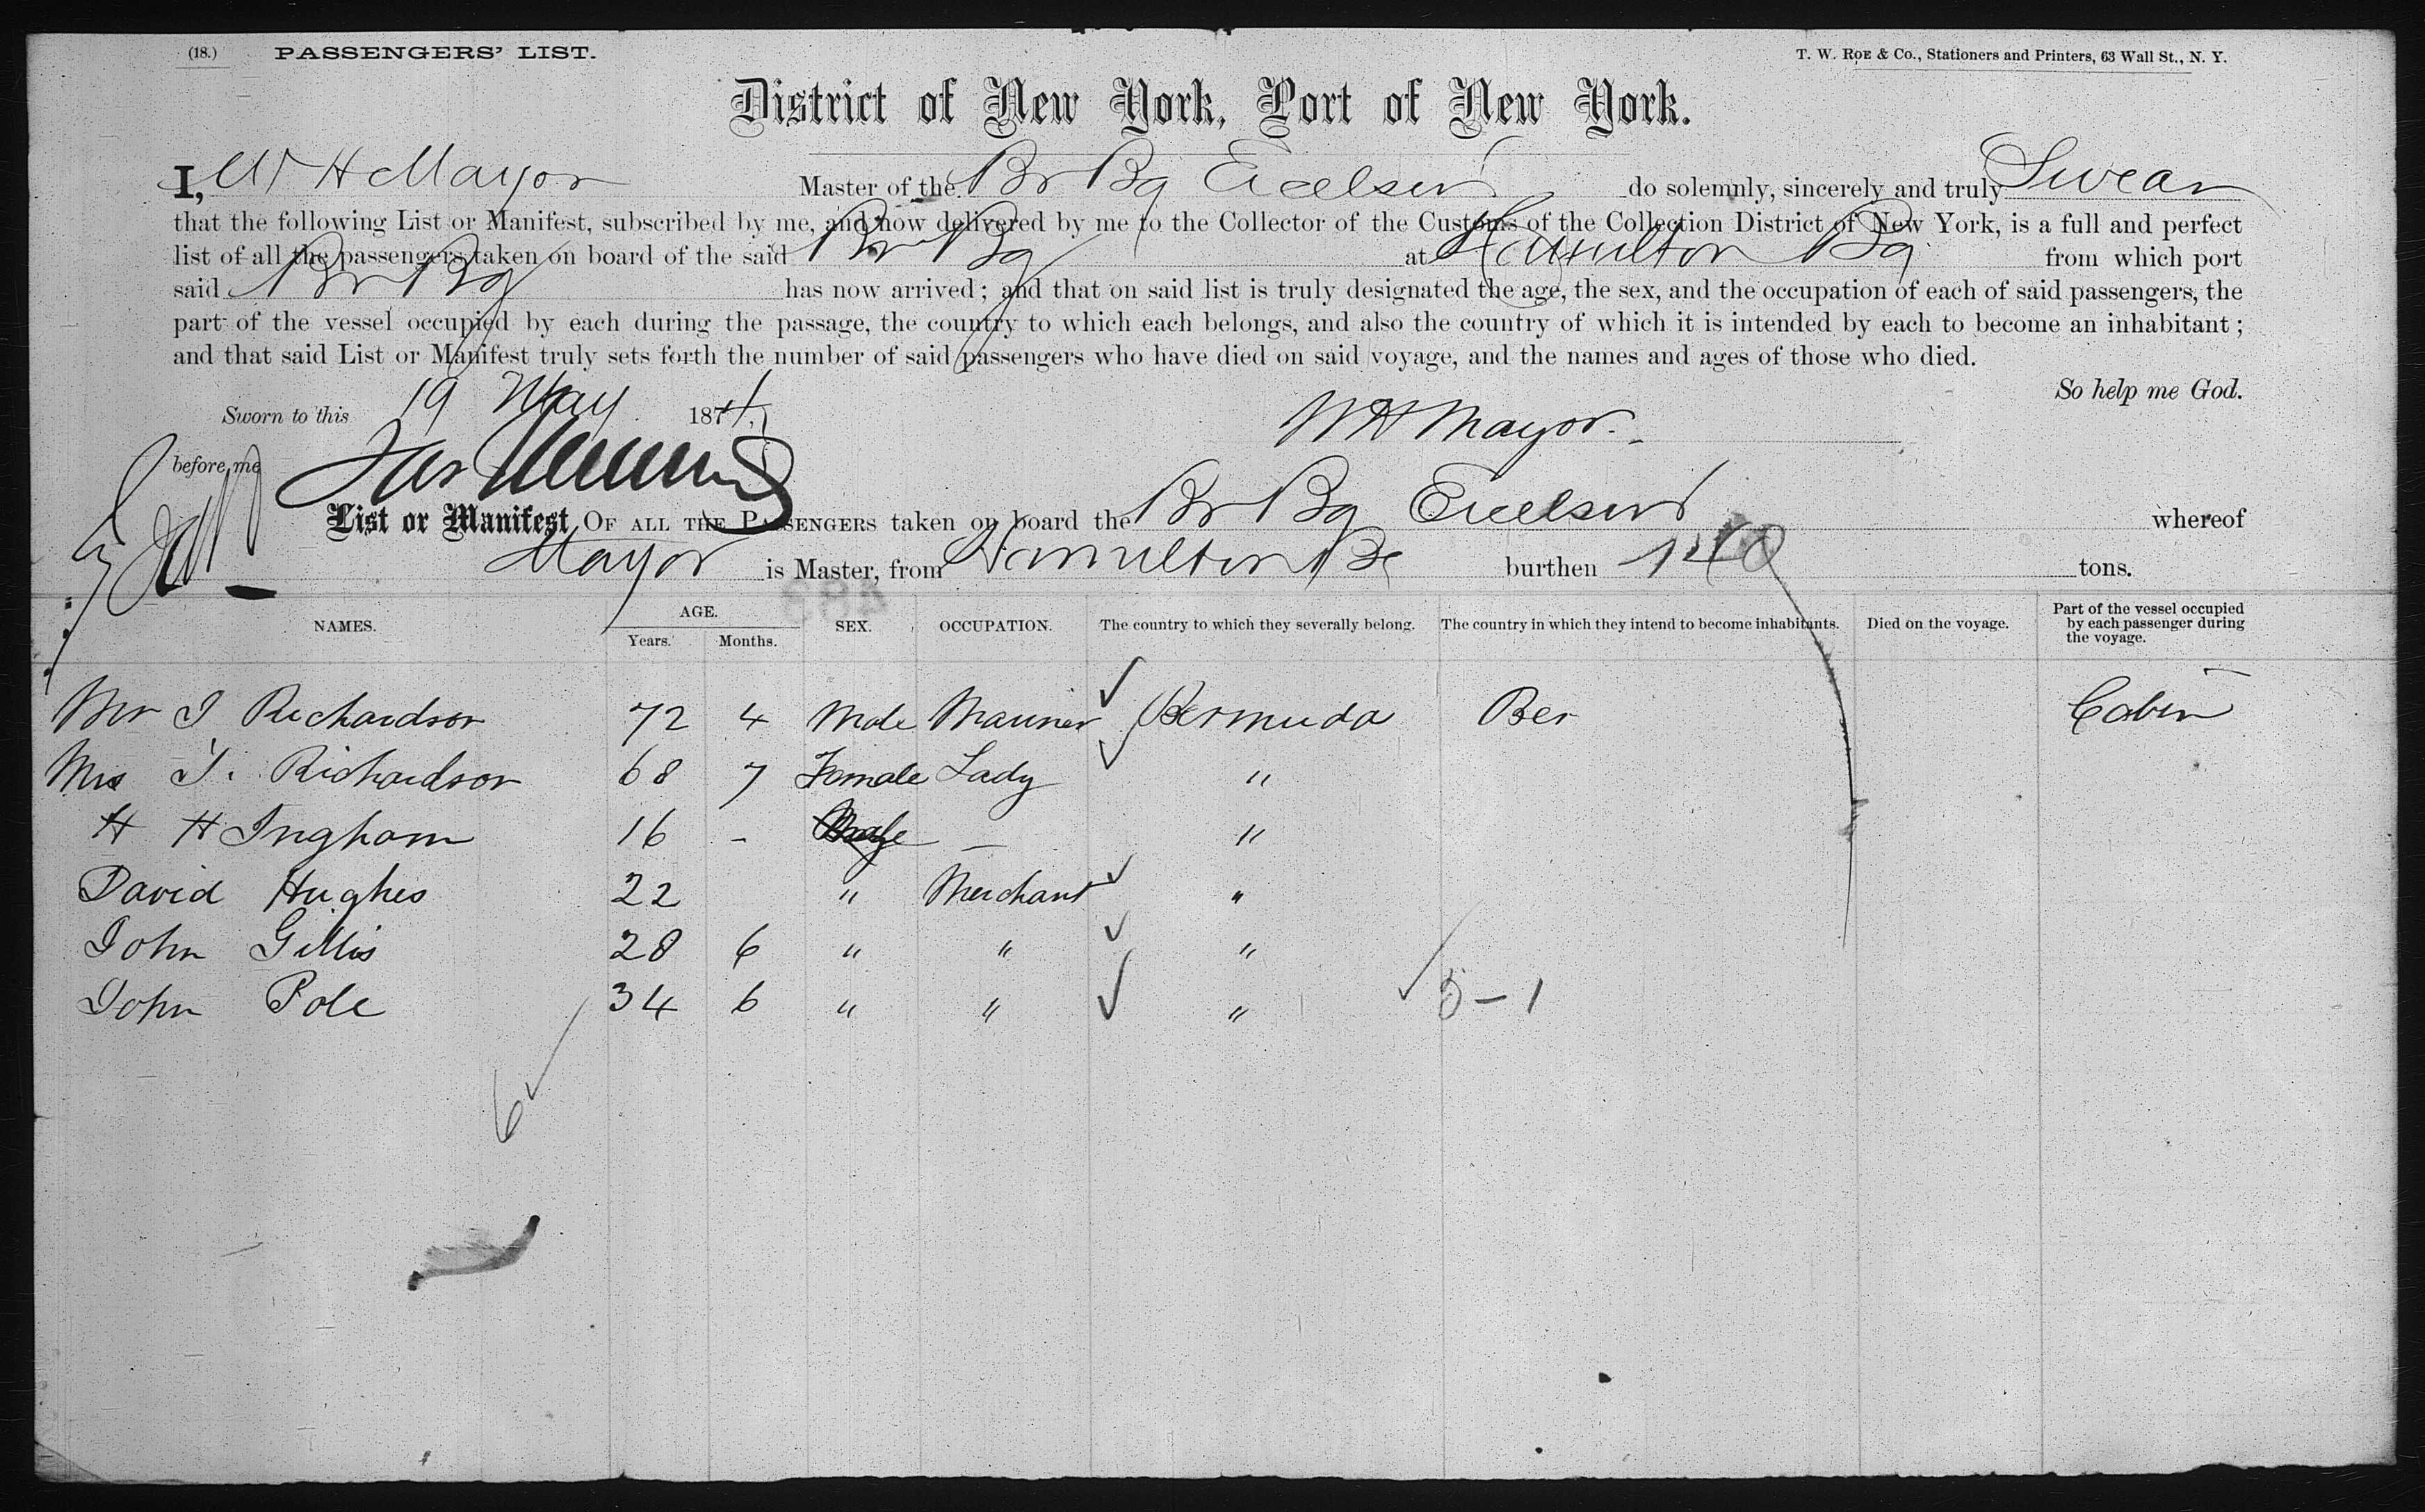 (18.) PASSENGERS' LIST. T. W. ROE & Co., Stationers and Printers, 63 Wall St., N. Y.
District of New York, Port of New York.
I, W H Mayor Master of the Br Bg Excelsior do solemnly, sincerely and truly Swear
that the following List or Manifest, subscribed by me, and now delivered by me to the Collector of the Customs of the Collection District of New York, is a full and perfect
list of all the passengers taken on board of the said Br Bg at Hamilton Bg from which port
said Br Bg has now arrived; and that on said list is truly designated the age, the sex, and the occupation of each of said passengers, the
part of the vessel occupied by each during the passage, the country to which each belongs, and also the country of which it is intended by each to become an inhabitant;
and that said List or Manifest truly sets forth the number of said passengers who have died on said voyage, and the names and ages of those who died.
So help me God.
Sworn to this 19 May 1874 WH Mayor
before me Jas
List or Manifest OF ALL THE PASSENGERS taken on board the Br Bg Excelsior whereof
Mayor is Master, from Hamilton Be burthen 140 tons.
NAMES. AGE. Years. Months. SEX. OCCUPATION. The country to which they severally belong. The country in which they intend to become inhabitants. Died on the voyage. Part of the vessel occupied by each passenger during the voyage.
Mr J Richardson 72 4 Male Mariner Bermuda Ber Cabin
Mrs J. Richardson 68 7 Female Lady "
H H Ingham 16 - Male - "
David Hughes 22 " Merchant "
John Gillis 28 6 " " "
John Pole 34 6 " " " 5-1
6